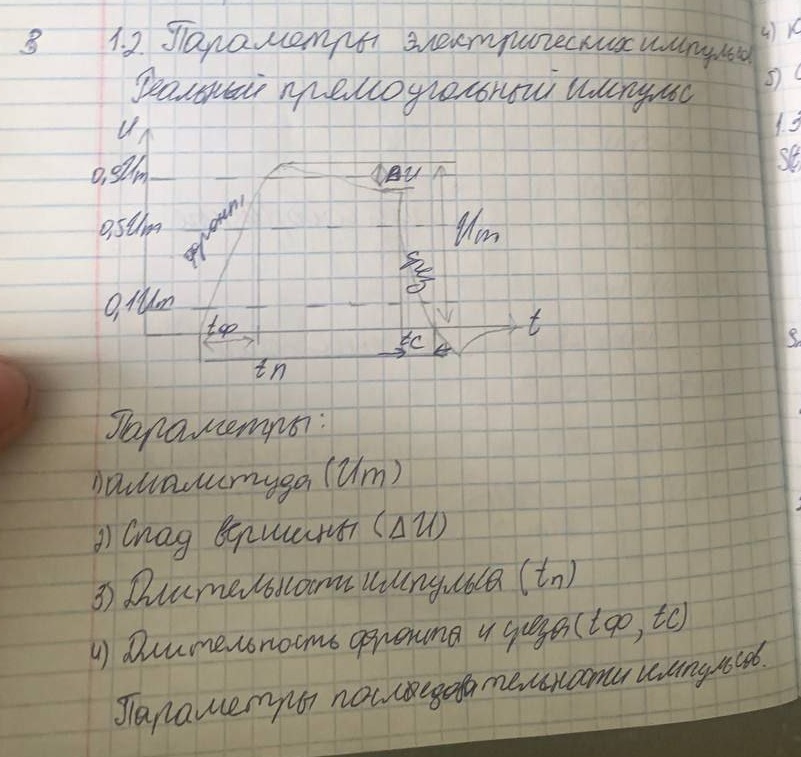 3 1.2 Параметры электрических импульсов
Реальный прямоугольный импульс
U
0,9Um
ΔU
фронт
0,5Um
Um
срез
0,1Um
tф
tc
t
tп
Параметры:
1) амплитуда (Um)
2) Спад вершины (ΔU)
3) Длительность импульса (tп)
4) Длительность фронта и среза (tф, tc)
Параметры последовательности импульсов.
4)
5)
1.3